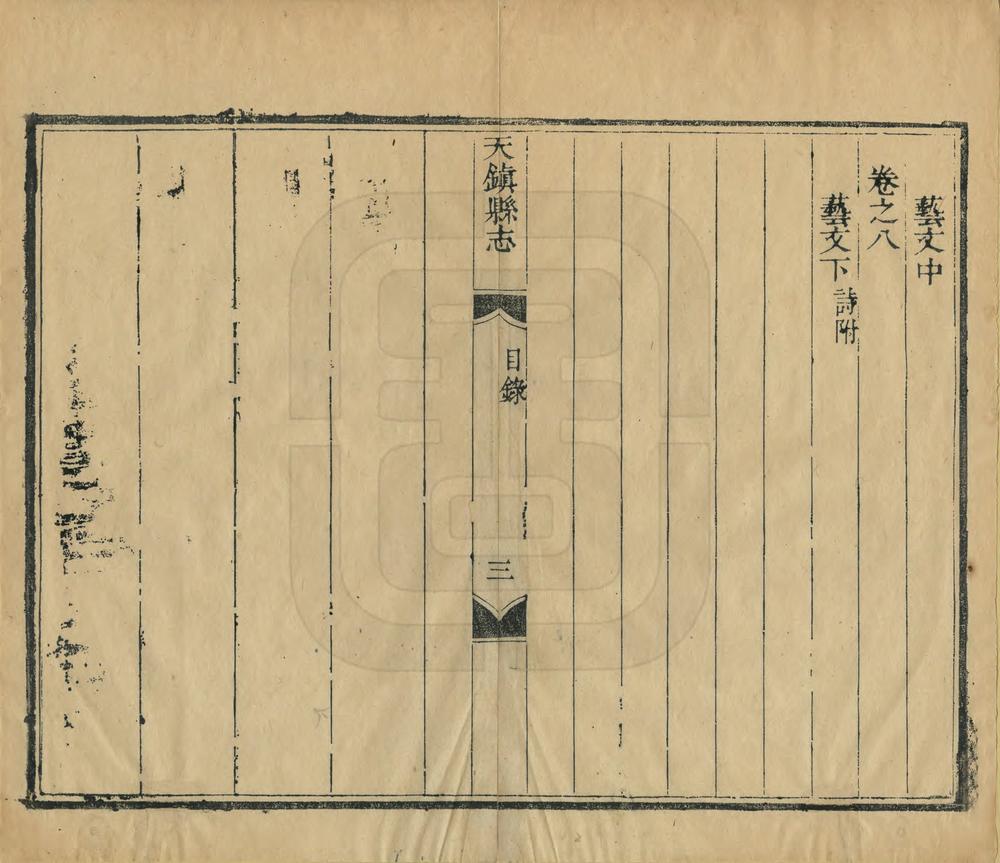 藝文中
卷之八
藝文下 詩附
天鎮縣志
目錄
三